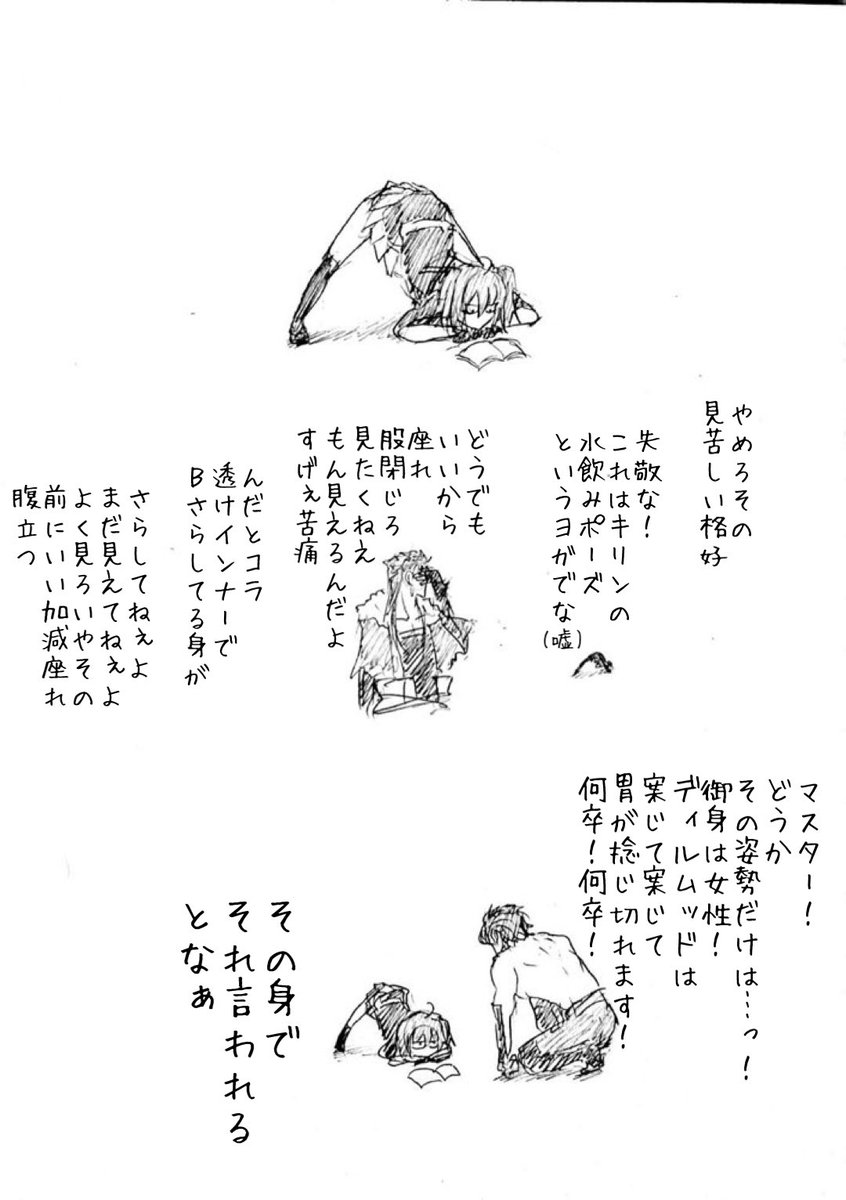 やめろその
見苦しい格好
失敬な！
これはキリンの
水飲みポーズ
というヨガでな
(嘘)
どうでも
いいから
座れ
股閉じろ
見たくねえ
もん見えるんだよ
すげぇ苦痛
んだとコラ
透けインナーで
Bさらしてる身が
さらしてねぇよ
まだ見えてねぇよ
よく見ろいやその
前にいい加減座れ
腹立つ
マスター！
どうか
その姿勢だけは…っ！
御身は女性！
ディルムッドは
案じて案じて
胃が捻じ切れます！
何卒！何卒！
その身で
それ言われる
となぁ